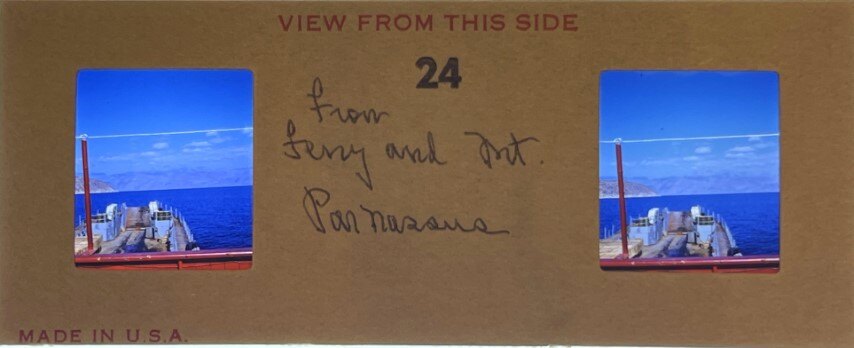 VIEW FROM THIS SIDE
24
From
Ferry and Mt.
Parnassus
MADE IN U.S.A.